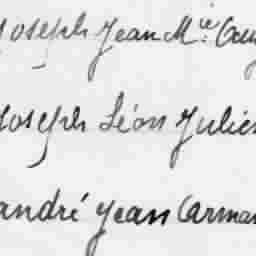 Joseph Jean M.ie
Joseph Léon Julien
andré Jean Carman